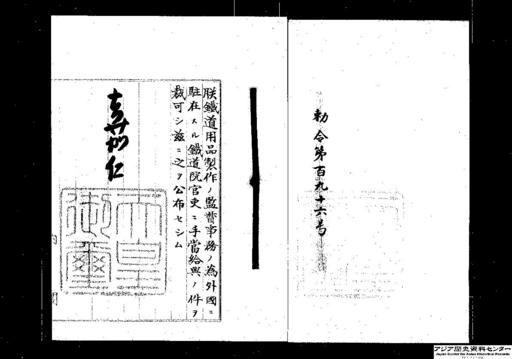 勅令第百九十六号
朕鐵道用品製作ノ監督事務ノ為外國ニ
駐在スル鐵道院官吏ニ手當給與ノ件ヲ
裁可シ茲ニ之ヲ公布セシム
嘉仁
天皇
御璽
アジア歴史資料センター
Japan Center for Asian Historical Records